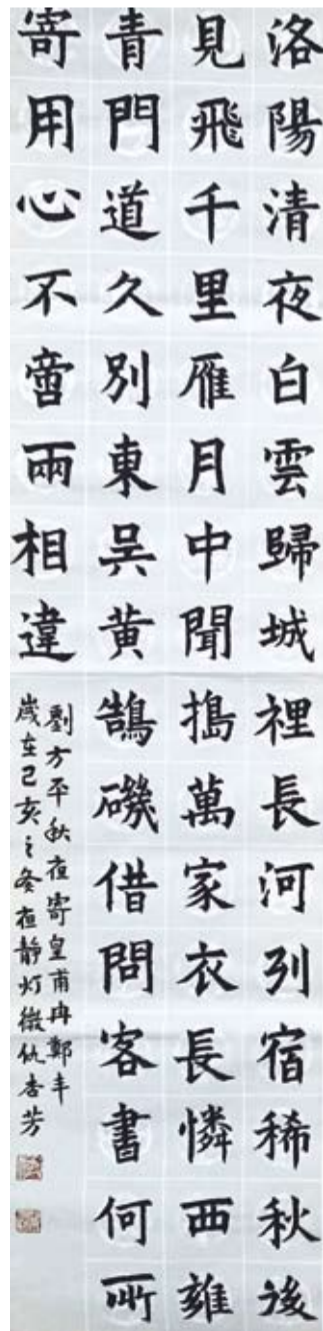 洛陽清夜白雲歸城裡長河列宿稀秋後
見飛千里雁月中聞搗萬家衣長憐西雍
青門道久別東吳黃鵠磯借問客書何所
寄用心不啻兩相違
劉方平秋夜寄皇甫冉鄭丰
歲在己亥之冬夜靜灯微仇杏芳